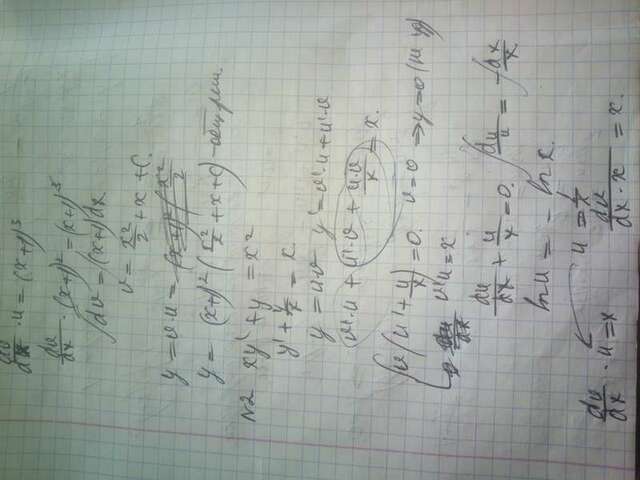 du/dx · u = (x+1)³
dv/dx · (x+1)² = (x+1)³
∫dv = ∫(x+1)dx
v = x²/2 + x + C.
y = v·u =
y = (x+1)² (x²/2 + x + C) - общ реш.
№2 xy' + y = x²
y' + y/x = x.
y = u·v y' = v'·u + u'·v
v'·u + u'·v + u·v/x = x.
v(u' + u/x) = 0. v = 0 ⇒ y = 0
v'u = x
du/dx + u/x = 0. ∫du/u = -∫dx/x
ln u = - ln x.
u = 1/x
dv/dx · u = x dv/dx·x = x.